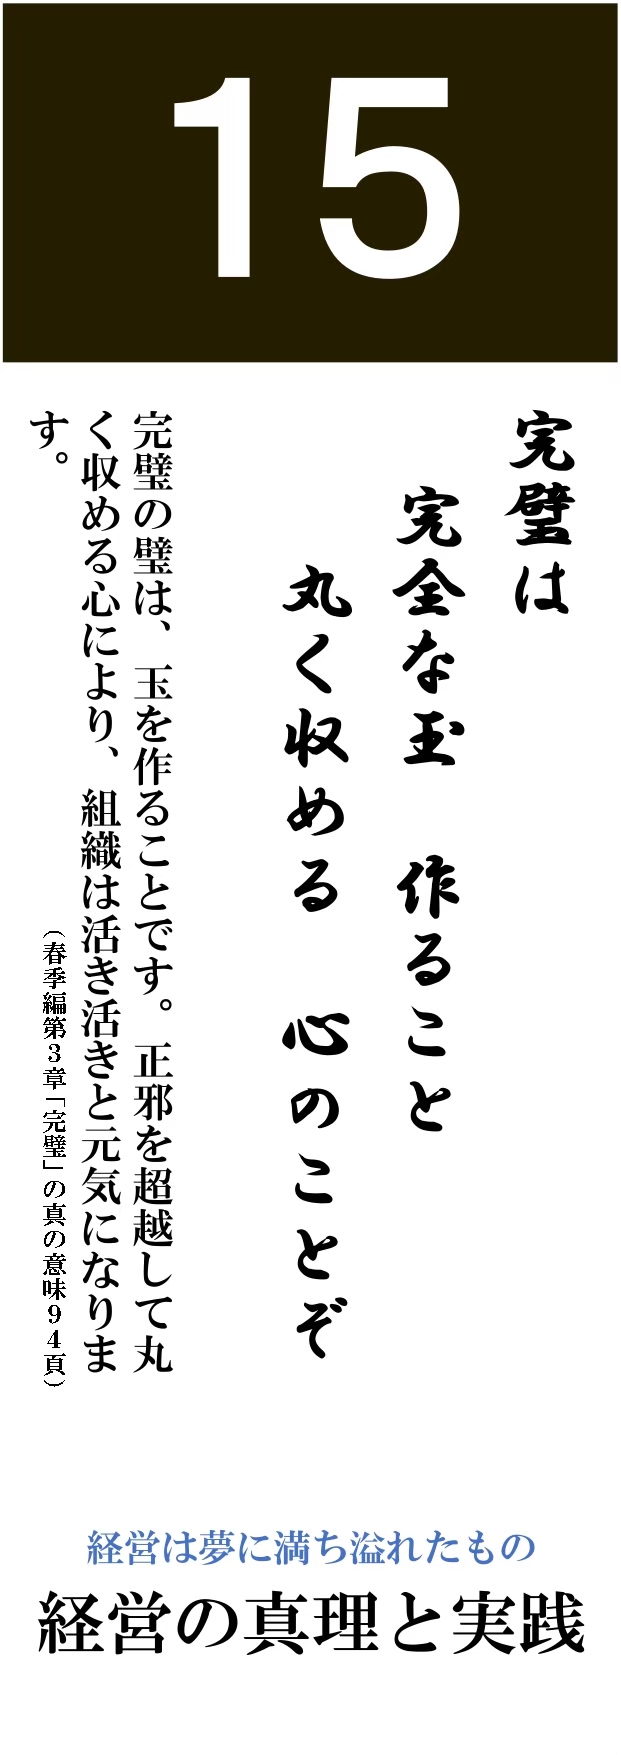 15
完璧は
完全な玉　作ること
丸く収める　心のことぞ
完璧の璧は、玉を作ることです。正邪を超越して丸
く収める心により、組織は活き活きと元気になりま
す。
（春季編第３章「完璧」の真の意味９４頁）
経営は夢に満ち溢れたもの
経営の真理と実践